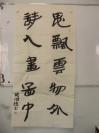 思飄雲物外
詩入畫圖中